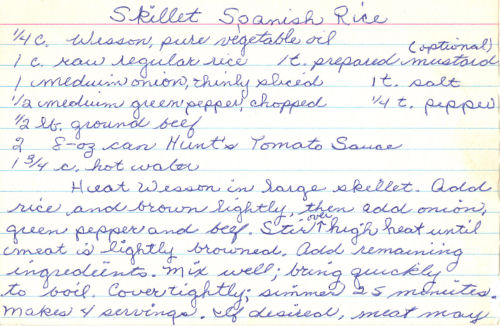 Skillet Spanish Rice
1/4 c. Wesson, pure vegetable oil
(optional)
1 c. raw regular rice 1 t. prepared mustard
1 meduim onion, thinly sliced 1 t. salt
1/2 medium green pepper, chopped 1/4 t. pepper
1/2 lb. ground beef
2 8-oz can Hunt's Tomato Sauce
1 3/4 c. hot water
Heat Wesson in large skillet. Add
rice and brown lightly, then add onion,
green pepper and beef. Stir over high heat until
meat is lightly browned. Add remaining
ingredients. Mix well; bring quickly
to boil. Cover tightly; simmer 25 minutes.
Makes 4 servings. If desired, meat may